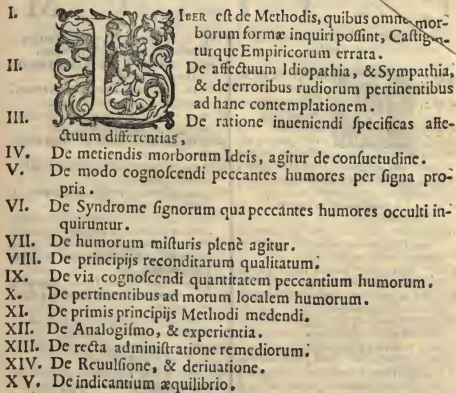 I. LIBER eſt de Methodis, quibus omne mor-
borum formæ inquiri poſſint, Caſtigan-
turque Empiricorum errata.
II. De affectuum Idiopathia, & Sympathia,
& de erroribus rudiorum pertinentibus
ad hanc contemplationem.
III. De ratione inueniendi ſpecificas affe-
ctuum differentias,
IV. De metiendis morborum Ideis, agitur de conſuetudine.
V. De modo cognoſcendi peccantes humores per ſigna pro-
pria.
VI. De Syndrome ſignorum qua peccantes humores occulti in-
quiruntur.
VII. De humorum miſturis plenè agitur.
VIII. De principijs reconditarum qualitatum.
IX. De via cognoſcendi quantitatem peccantium humorum.
X. De pertinentibus ad motum localem humorum.
XI. De primis principijs Methodi medendi.
XII. De Analogiſmo, & experientia.
XIII. De recta adminiſtratione remediorum.
XIV. De Reuulſione, & deriuatione.
XV. De indicantium æquilibrio.